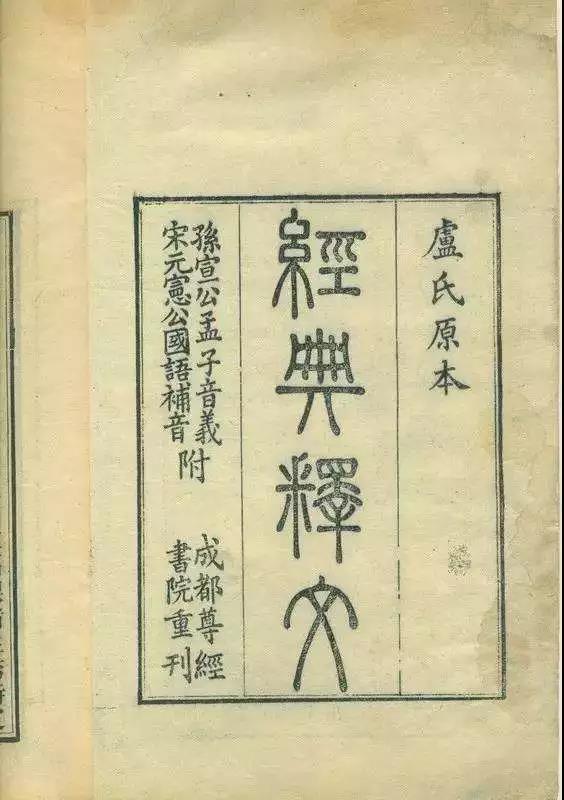 盧氏原本
經典釋文
孫宣公孟子音義
宋元憲公國語補音
附
成都尊經
書院重刊